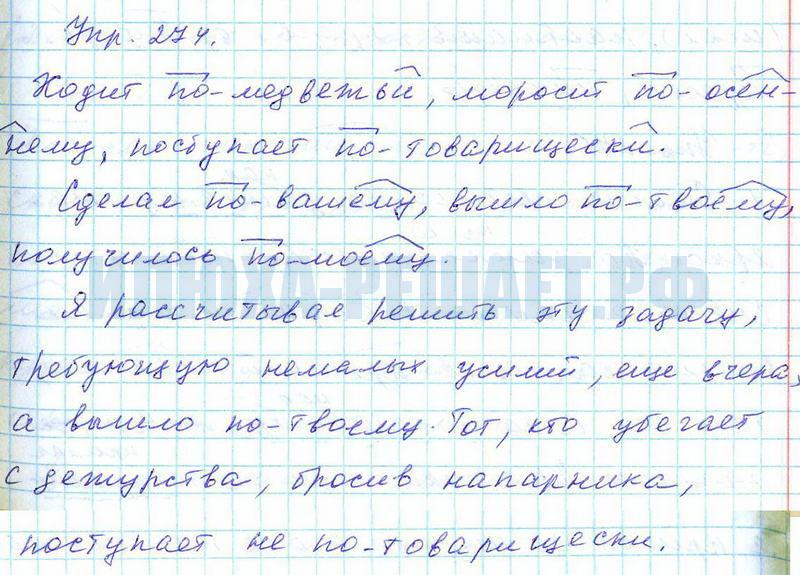 Упр. 274.
Ходит по-медвежьи, моросит по-осен-
нему, поступает по-товарищески.
Сделал по-вашему, вышло по-твоему,
получилось по-моему.
ИЛЮХА-РЕШАЕТ.РФ
Я рассчитывал решить эту задачу,
требующую немалых усилий, еще вчера,
а вышло по-твоему. Тот, кто убегает
с дежурства, бросив напарника,
поступает не по-товарищески.